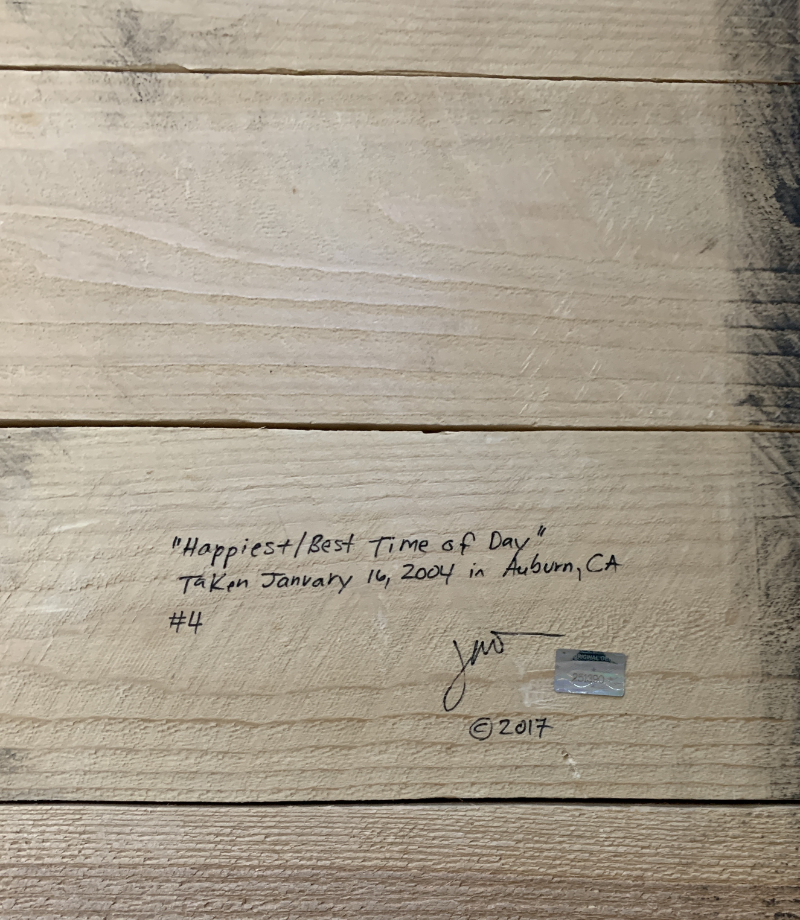 "Happiest/Best Time of Day"
Taken January 16, 2004 in Auburn, CA
#4
©2017